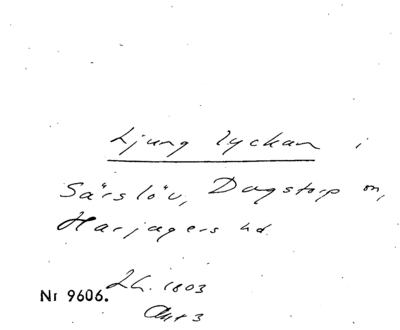 Ljung lyckan i
Särslöv, Dagstorp sn,
Harjagers hd.
Lh. 1803
Nr 9606.
Akt 3